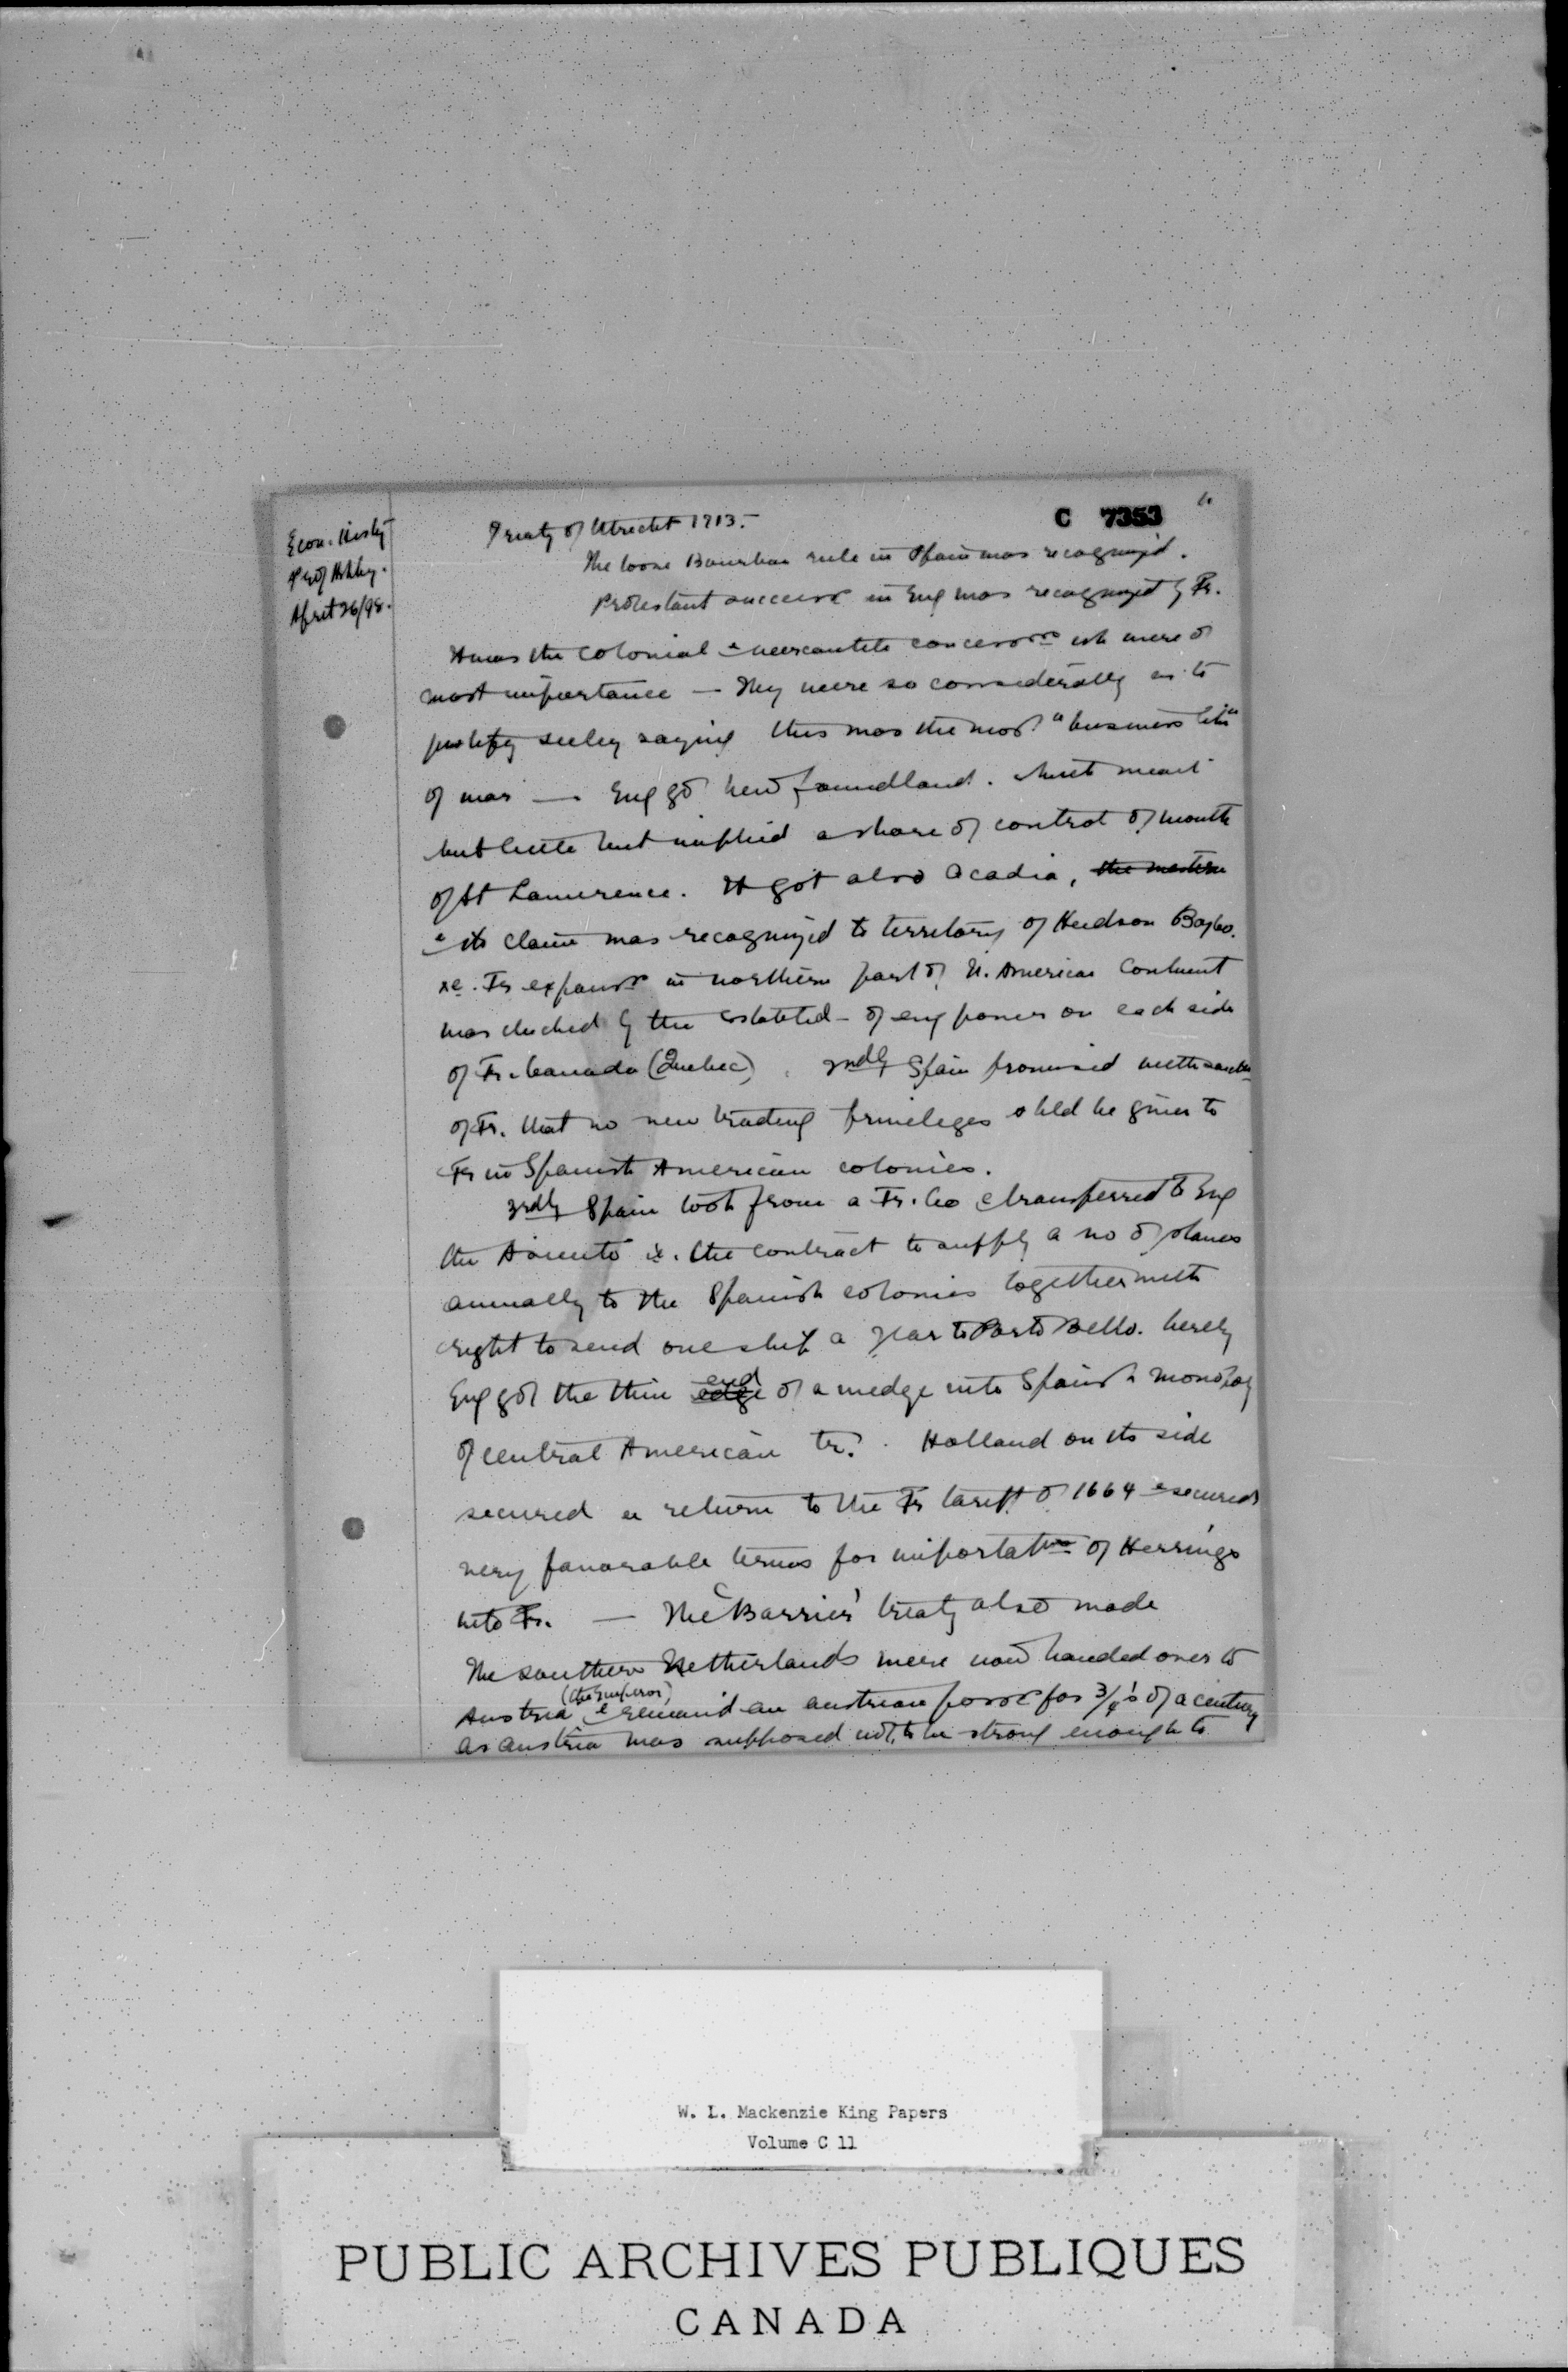 Econ. Hist'y
Prof Ashley.
April 26/98.
C 7353
Treaty of Utrecht 1713.-
The loose Bourbon rule in Spain was recognized.
Protestant success in Eng was recognized by Fr.
It was the colonial & mercantile concess wh were of
most importance — They were so considerably as to
justify Seeley saying this was the most "business like"
of war — Eng got Newfoundland. which meant
but little but implied a share of control of mouth
of St Lawrence. It got also Acadia, the western
& its claim was recognized to territory of Hudson Bay Co.
ie. Fr expans in northern part of N. American Continent
was checked by the of eng power on each side
of Fr. Canada (Quebec). 2ndly Spain promised with
of Fr. that no new trading privileges shld be given to
Fr in Spanish American colonies.
3rdly Spain took from a Fr. Co & transferred to Eng
the Asiento ie. the contract to supply a no of slaves
annually to the Spanish colonies together with
right to send one ship a year to Porto Bello. hereby
Eng got the thin edge end of a wedge into Spanish monopoly
of central American tr. Holland on its side
secured a return to the Fr tariff of 1664 & secured
very favorable terms for importation of Herrings
into Fr. — The 'Barrier' treaty also made
The southern Netherlands were now handed over to
Austria (the Emperor) & remain'd an austrian for 3/4's of a century
as austria was supposed not to be strong enough to
W. L. Mackenzie King Papers
Volume C 11
PUBLIC ARCHIVES PUBLIQUES
CANADA